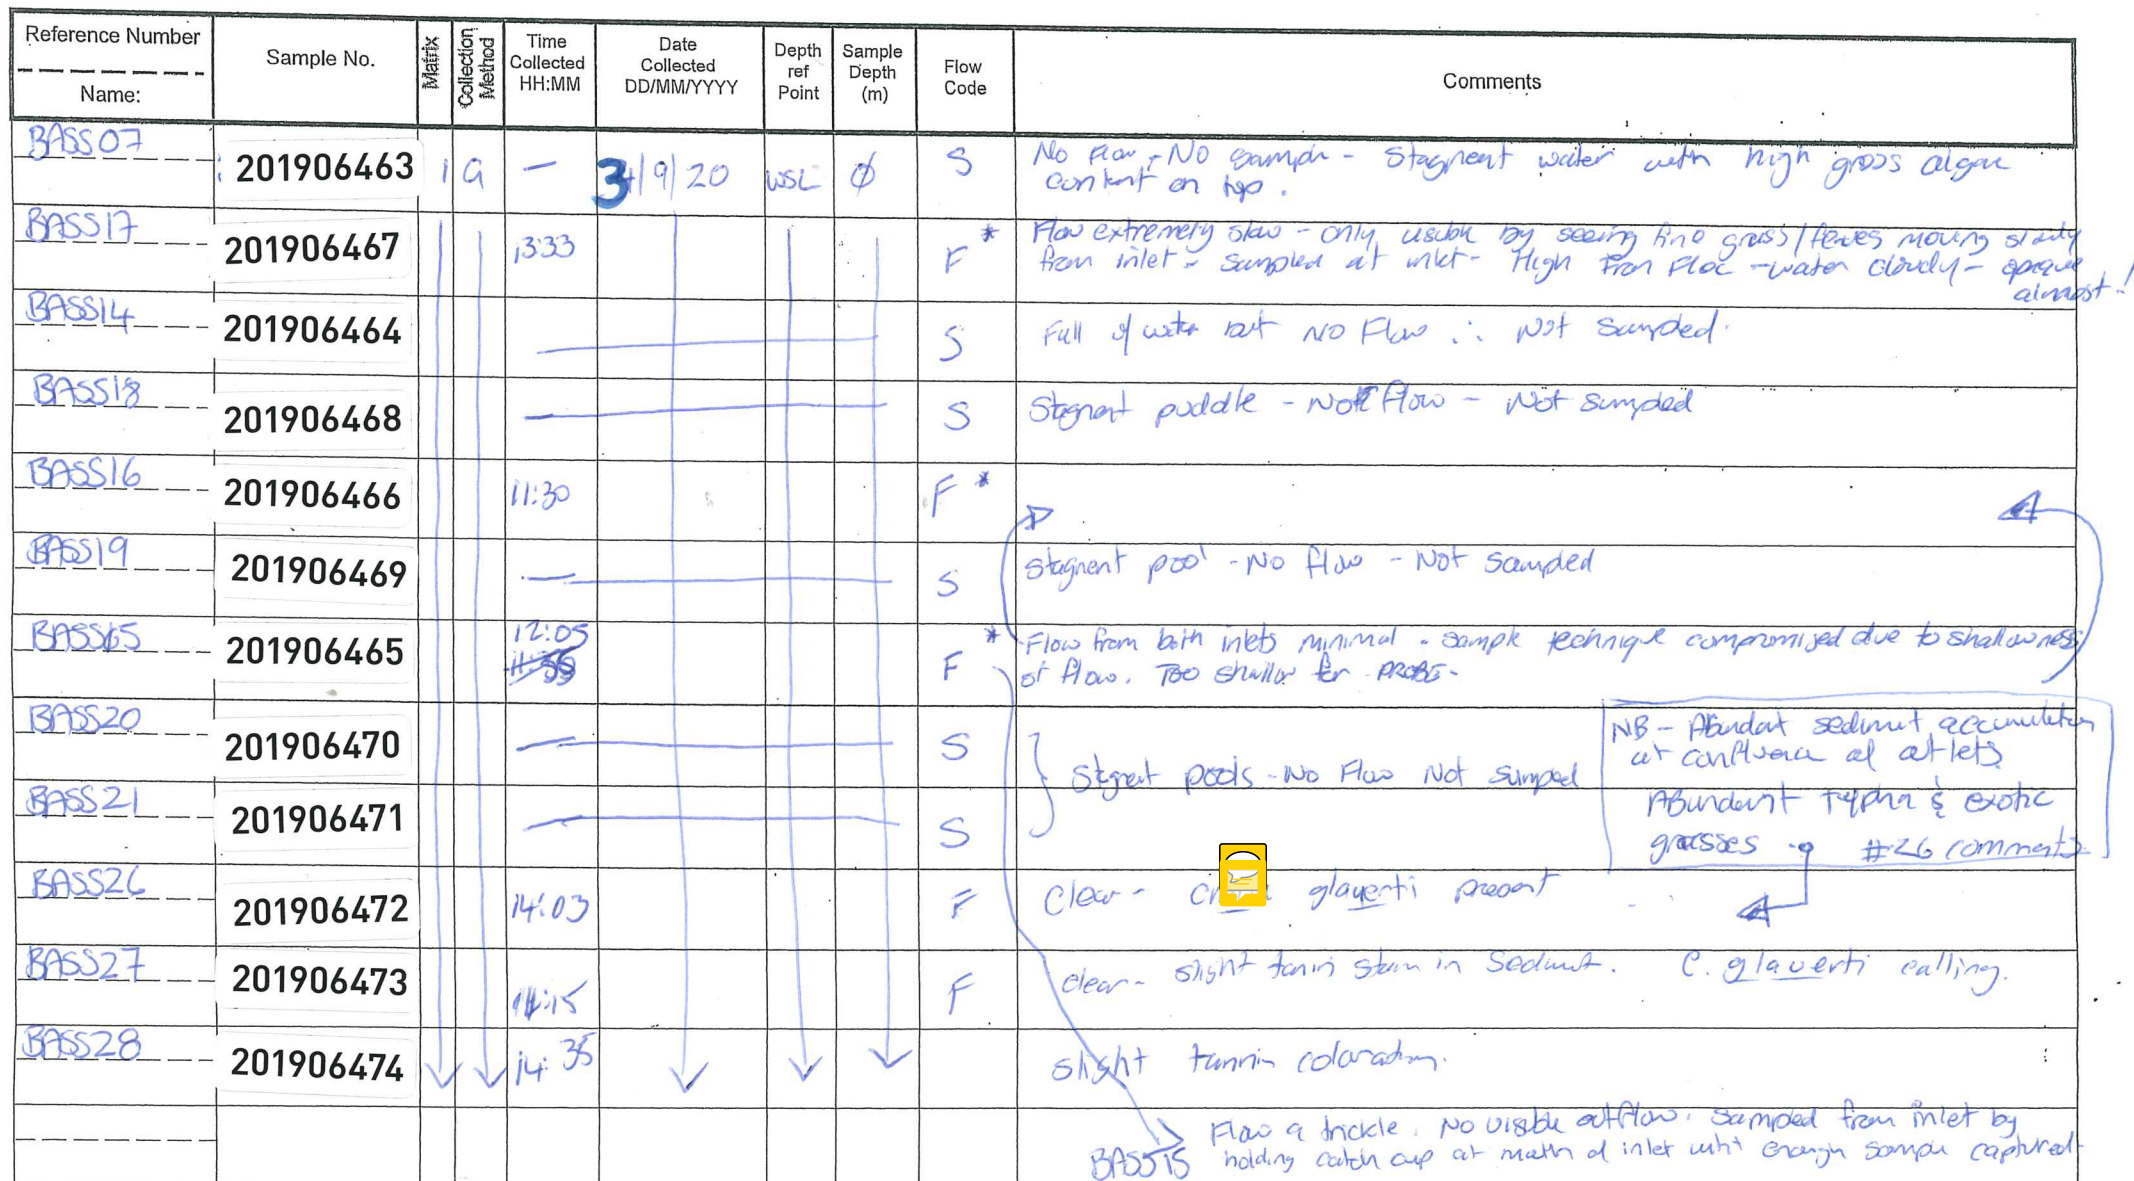 Reference Number Name: Sample No. Matrix Collection Method Time Collected HH:MM Date Collected DD/MM/YYYY Depth ref Point Sample Depth (m) Flow Code Comments
BASS07 201906463 1 G — 3/9/20 WSL Ø S No flow, No sample - Stagnent water with high grass algae
content on top.
BASS17 201906467 13:33 F * Flow extremely slow - only visible by seeing fine grass/leaves moving slowly
from inlet - sampled at inlet - High Iron Floc - water cloudy - opaque
almost!
BASS14 201906464 — S Full of water but NO Flow ∴ Not Sampled.
BASS18 201906468 — S Stagnent puddle - No Flow - Not sampled
BASS16 201906466 11:30 F *
BASS19 201906469 — S Stagnent pool - No flow - Not sampled
BASS65 201906465 12:05 F * Flow from both inlets minimal - sample technique compromized due to shallowness
of flow. Too shallow for PROBE-
BASS20 201906470 — S
BASS21 201906471 — S
Stgnent pools - No Flow Not sampled
NB - Abundant sediment accumulation
at confluence of outlets
Abundant Typha & exotic
grasses #26 comments
BASS26 201906472 14:03 F Clear - glauerti present
BASS27 201906473 14:15 F clear - slight tannin stain in Sediment. C. glauerti calling.
BASS28 201906474 14:35 slight tannin colaration.
BASS15 Flow a trickle. No visible outflow. Sampled from inlet by
holding catch cup at mouth of inlet until enough sample captured